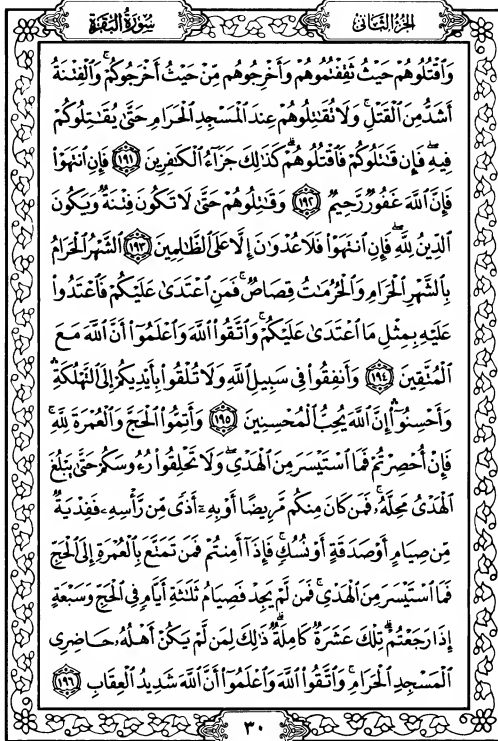 سُورَةُ البَقَرَةِ
الجُزْءُ الثَّانِي
وَٱقۡتُلُوهُمۡ حَيۡثُ ثَقِفۡتُمُوهُمۡ وَأَخۡرِجُوهُم مِّنۡ حَيۡثُ أَخۡرَجُوكُمۡۚ وَٱلۡفِتۡنَةُ
أَشَدُّ مِنَ ٱلۡقَتۡلِۚ وَلَا تُقَٰتِلُوهُمۡ عِندَ ٱلۡمَسۡجِدِ ٱلۡحَرَامِ حَتَّىٰ يُقَٰتِلُوكُمۡ
فِيهِۖ فَإِن قَٰتَلُوكُمۡ فَٱقۡتُلُوهُمۡۗ كَذَٰلِكَ جَزَآءُ ٱلۡكَٰفِرِينَ ١٩١ فَإِنِ ٱنتَهَوۡاْ
فَإِنَّ ٱللَّهَ غَفُورٞ رَّحِيمٞ ١٩٢ وَقَٰتِلُوهُمۡ حَتَّىٰ لَا تَكُونَ فِتۡنَةٞ وَيَكُونَ
ٱلدِّينُ لِلَّهِۖ فَإِنِ ٱنتَهَوۡاْ فَلَا عُدۡوَٰنَ إِلَّا عَلَى ٱلظَّٰلِمِينَ ١٩٣ ٱلشَّهۡرُ ٱلۡحَرَامُ
بِٱلشَّهۡرِ ٱلۡحَرَامِ وَٱلۡحُرُمَٰتُ قِصَاصٞۚ فَمَنِ ٱعۡتَدَىٰ عَلَيۡكُمۡ فَٱعۡتَدُواْ
عَلَيۡهِ بِمِثۡلِ مَا ٱعۡتَدَىٰ عَلَيۡكُمۡۚ وَٱتَّقُواْ ٱللَّهَ وَٱعۡلَمُوٓاْ أَنَّ ٱللَّهَ مَعَ
ٱلۡمُتَّقِينَ ١٩٤ وَأَنفِقُواْ فِي سَبِيلِ ٱللَّهِ وَلَا تُلۡقُواْ بِأَيۡدِيكُمۡ إِلَى ٱلتَّهۡلُكَةِ
وَأَحۡسِنُوٓاْۚ إِنَّ ٱللَّهَ يُحِبُّ ٱلۡمُحۡسِنِينَ ١٩٥ وَأَتِمُّواْ ٱلۡحَجَّ وَٱلۡعُمۡرَةَ لِلَّهِۚ
فَإِنۡ أُحۡصِرۡتُمۡ فَمَا ٱسۡتَيۡسَرَ مِنَ ٱلۡهَدۡيِۖ وَلَا تَحۡلِقُواْ رُءُوسَكُمۡ حَتَّىٰ يَبۡلُغَ
ٱلۡهَدۡيُ مَحِلَّهُۥۚ فَمَن كَانَ مِنكُم مَّرِيضًا أَوۡ بِهِۦٓ أَذٗى مِّن رَّأۡسِهِۦ فَفِدۡيَةٞ
مِّن صِيَامٍ أَوۡ صَدَقَةٍ أَوۡ نُسُكٖۚ فَإِذَآ أَمِنتُمۡ فَمَن تَمَتَّعَ بِٱلۡعُمۡرَةِ إِلَى ٱلۡحَجِّ
فَمَا ٱسۡتَيۡسَرَ مِنَ ٱلۡهَدۡيِۚ فَمَن لَّمۡ يَجِدۡ فَصِيَامُ ثَلَٰثَةِ أَيَّامٖ فِي ٱلۡحَجِّ وَسَبۡعَةٍ
إِذَا رَجَعۡتُمۡۗ تِلۡكَ عَشَرَةٞ كَامِلَةٞۗ ذَٰلِكَ لِمَن لَّمۡ يَكُنۡ أَهۡلُهُۥ حَاضِرِي
ٱلۡمَسۡجِدِ ٱلۡحَرَامِۚ وَٱتَّقُواْ ٱللَّهَ وَٱعۡلَمُوٓاْ أَنَّ ٱللَّهَ شَدِيدُ ٱلۡعِقَابِ ١٩٦
٣٠